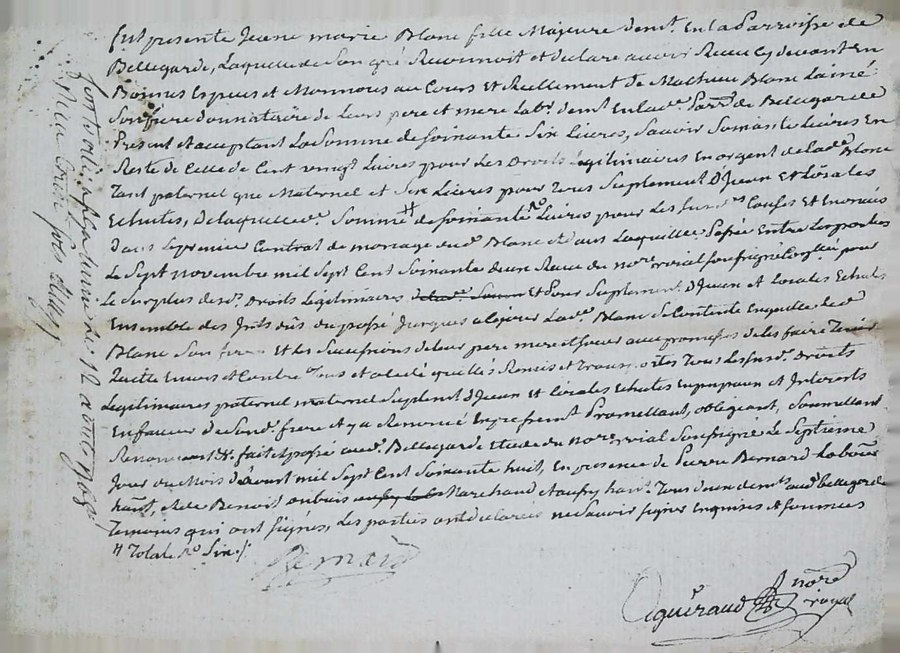 fut presente Jeane marie Blanc fille Majeure demt. En la Parroisse de
Bellegarde, Laquelle de Son gré Reconnoit et declare avoir Receu Cy devant En
Bonnes Especes et Monnoies au Cours Et Reellement De Mathieu Blanc Lainé
Son frere donnataire de Leurs pere et mere Labr. demt. En lad. Parrse de Bellegarde
Present et acceptant La Somme de Soixante Six Livres, Savoir Soixante Livres En
Reste de Celle de Cent vingt Livres pour Les Droits Legitimaires En argent de Lade. Blanc
Tant paternel que Maternel et Six Livres pour Tous Suplement D'Iceux Et Loisales
Echutes, De laquelle de. Somme # de Soixante Livres pour Les Susd. Causes Et Enoncés
Dans Le premier Contrat de mariage de d. Blanc et dans Laquille Passée Entre Les parties
Le Sept novembre mil Sept Cent Soixante deux Receu du nore. roial Soussigné pour
Le Surplus desd. Droits Legitimaires Et Pour Suplement D'Iceux et Loisales Echutes
Ensemble des Jnts. dus du passé Jusques a Ce jour Lade. Blanc Se Contente En quitte le d.
Blanc Son frere Et les Successions de leur pere mere et Soeur avec promesse de les faire Tenir
quitte Envers et Contre Tous et a Cedé quitté Remis et transporté Tous Les Susd. Droits
Legitimaires paternel maternel Suplemt. D'Iceux Et Loisales Echutes En principaux et Interets
En faveur de Sond. frere Et y a Renoncé En present Promettant, obligeant, Soumettant
Renonçant &. fait et passé aud. Bellegarde Etude du nore. roial Soussigné Le Septieme
Jour du Mois D'avout mil Sept Cent Soixante huit, En presence de Pierre Bernard Labour
hant, Et de Benoit Marchand hant. Tous deux demts. aud. Bellegarde
Temoins qui ont Signés, Les parties ont declarées ne Savoir Signer Enquises Et Sommées
# Totale Six /.
Bernard
Aguiraud nore royal
le 12 aout 1768